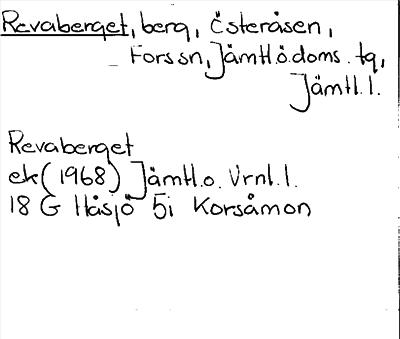 Revaberget, berg, Österåsen,
Fors sn, Jämtl.ö.doms. tg,
Jämtl. l.
Revaberget
ek (1968) Jämtl. o. Vrnl. l.
18 G Håsjö 5i Korsåmon